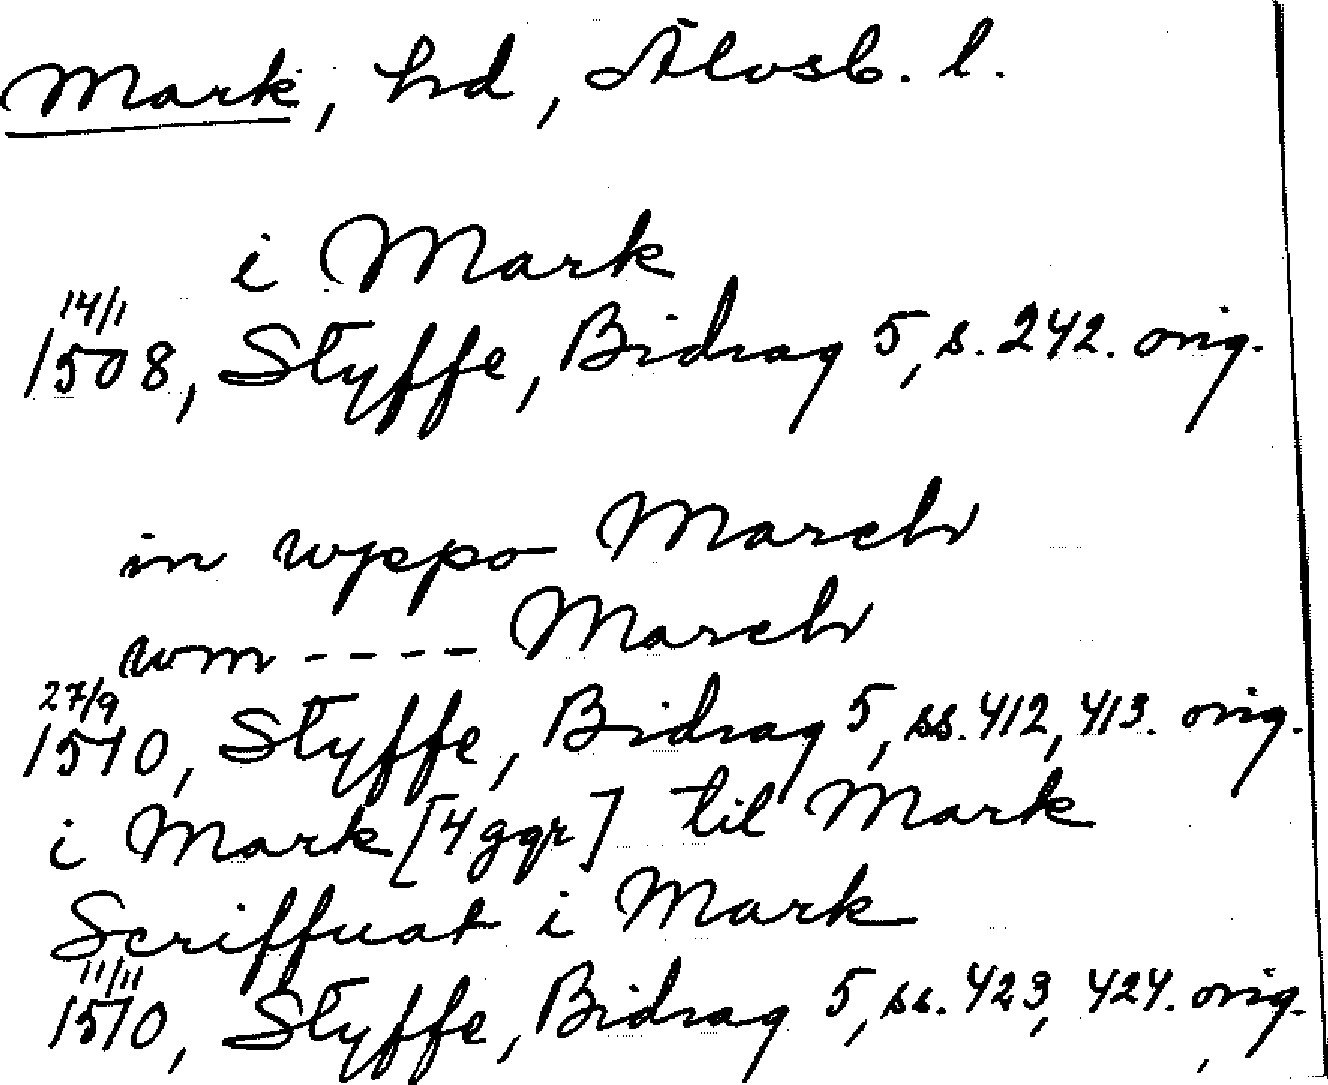 Mark, hd, Älvsb. l.
i Mark
14/1
1508, Styffe, Bidrag 5, s. 242. orig.
in wppo March
wm ---- March
27/9
1510, Styffe, Bidrag 5, ss. 412, 413. orig.
i Mark [4 ggr] til Mark
Scriffuat i Mark
11/11
1510, Styffe, Bidrag 5, ss. 423, 424. orig.